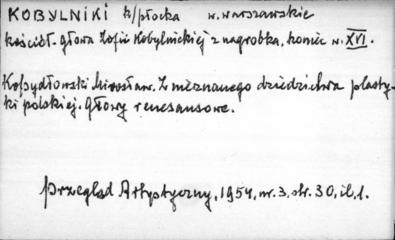 KOBYLNIKI k/płocka w. warszawskie
kościół. Głowa Zofii Kobylnickiej z nagrobka, koniec w. XVI.
Kopydłowski Mirosław. Z nieznanego dziedzictwa plasty-
ki polskiej. Głowy renesansowe.
Przegląd Artystyczny, 1954, nr. 3, str. 30, il. 1.